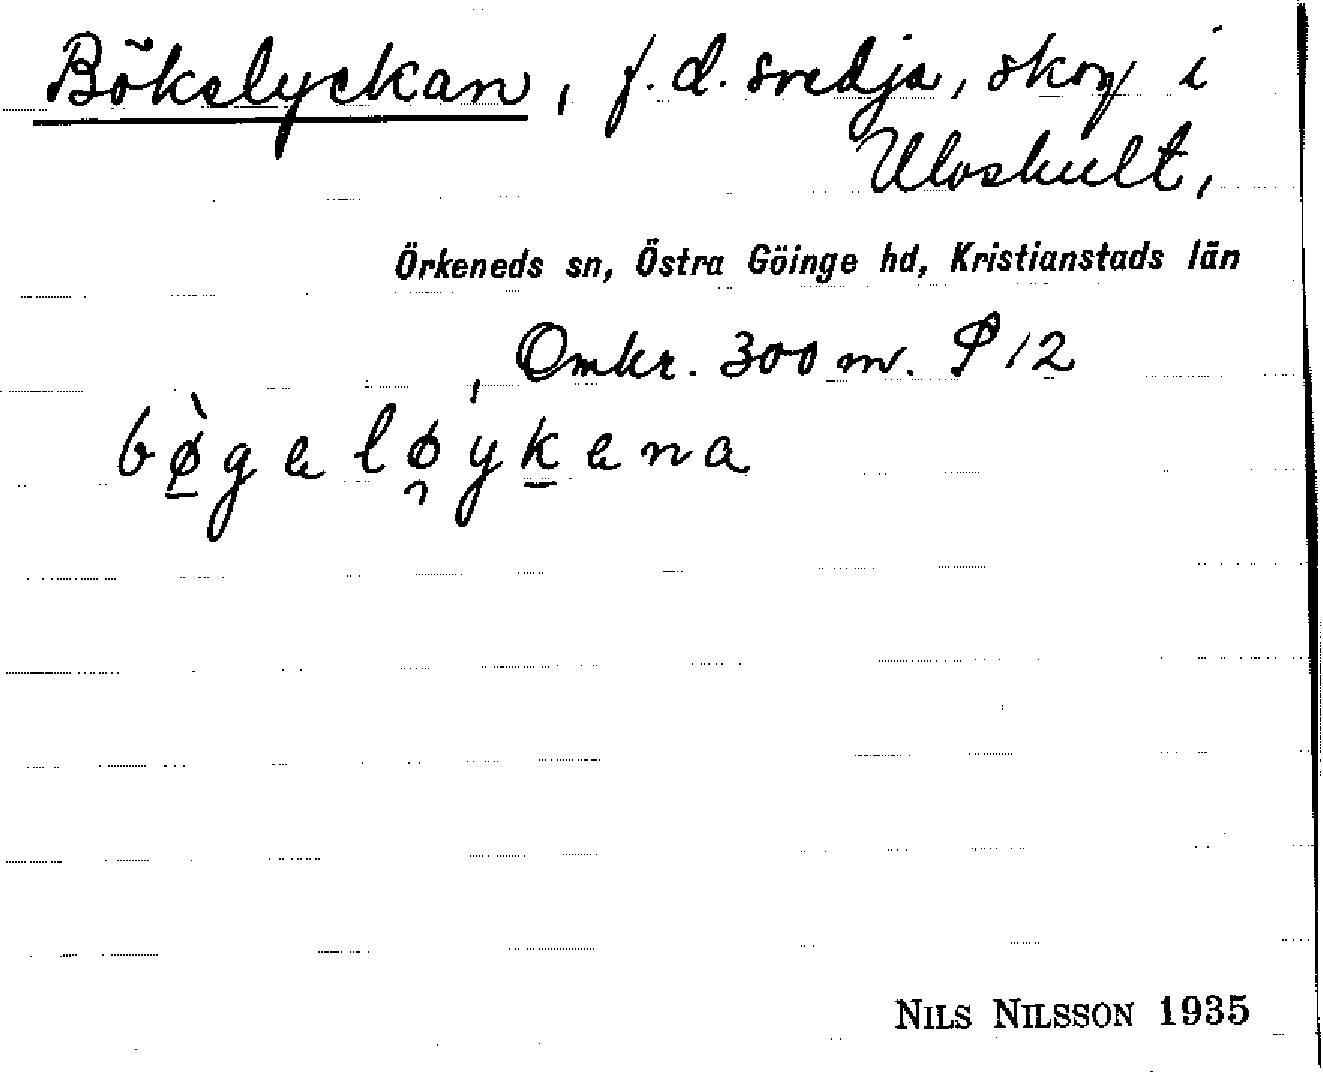 Bökelyckan, f. d. svedja, skog i
Uloshult,
Örkeneds sn, Östra Göinge hd, Kristianstads län
Omkr. 300 m. P 12
bø̠̀geløyk̠ena
NILS NILSSON 1935